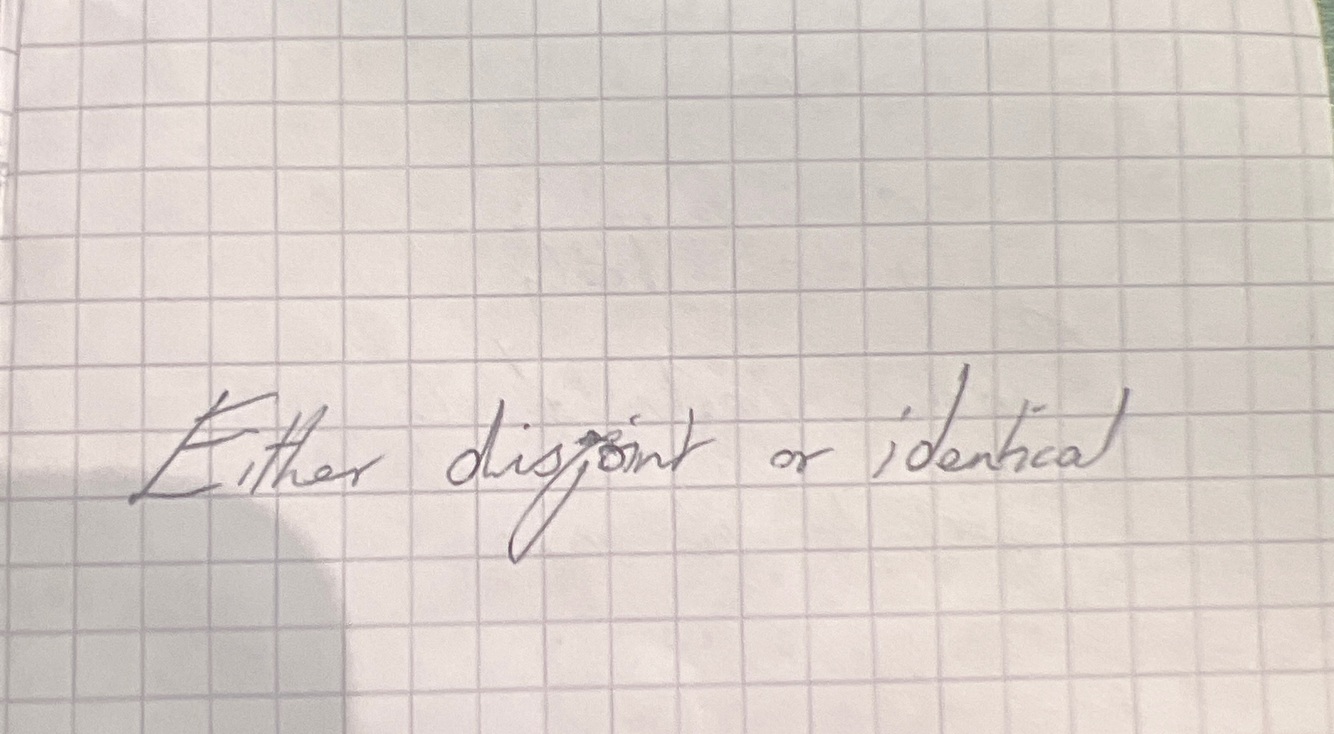 Either disjoint or identical